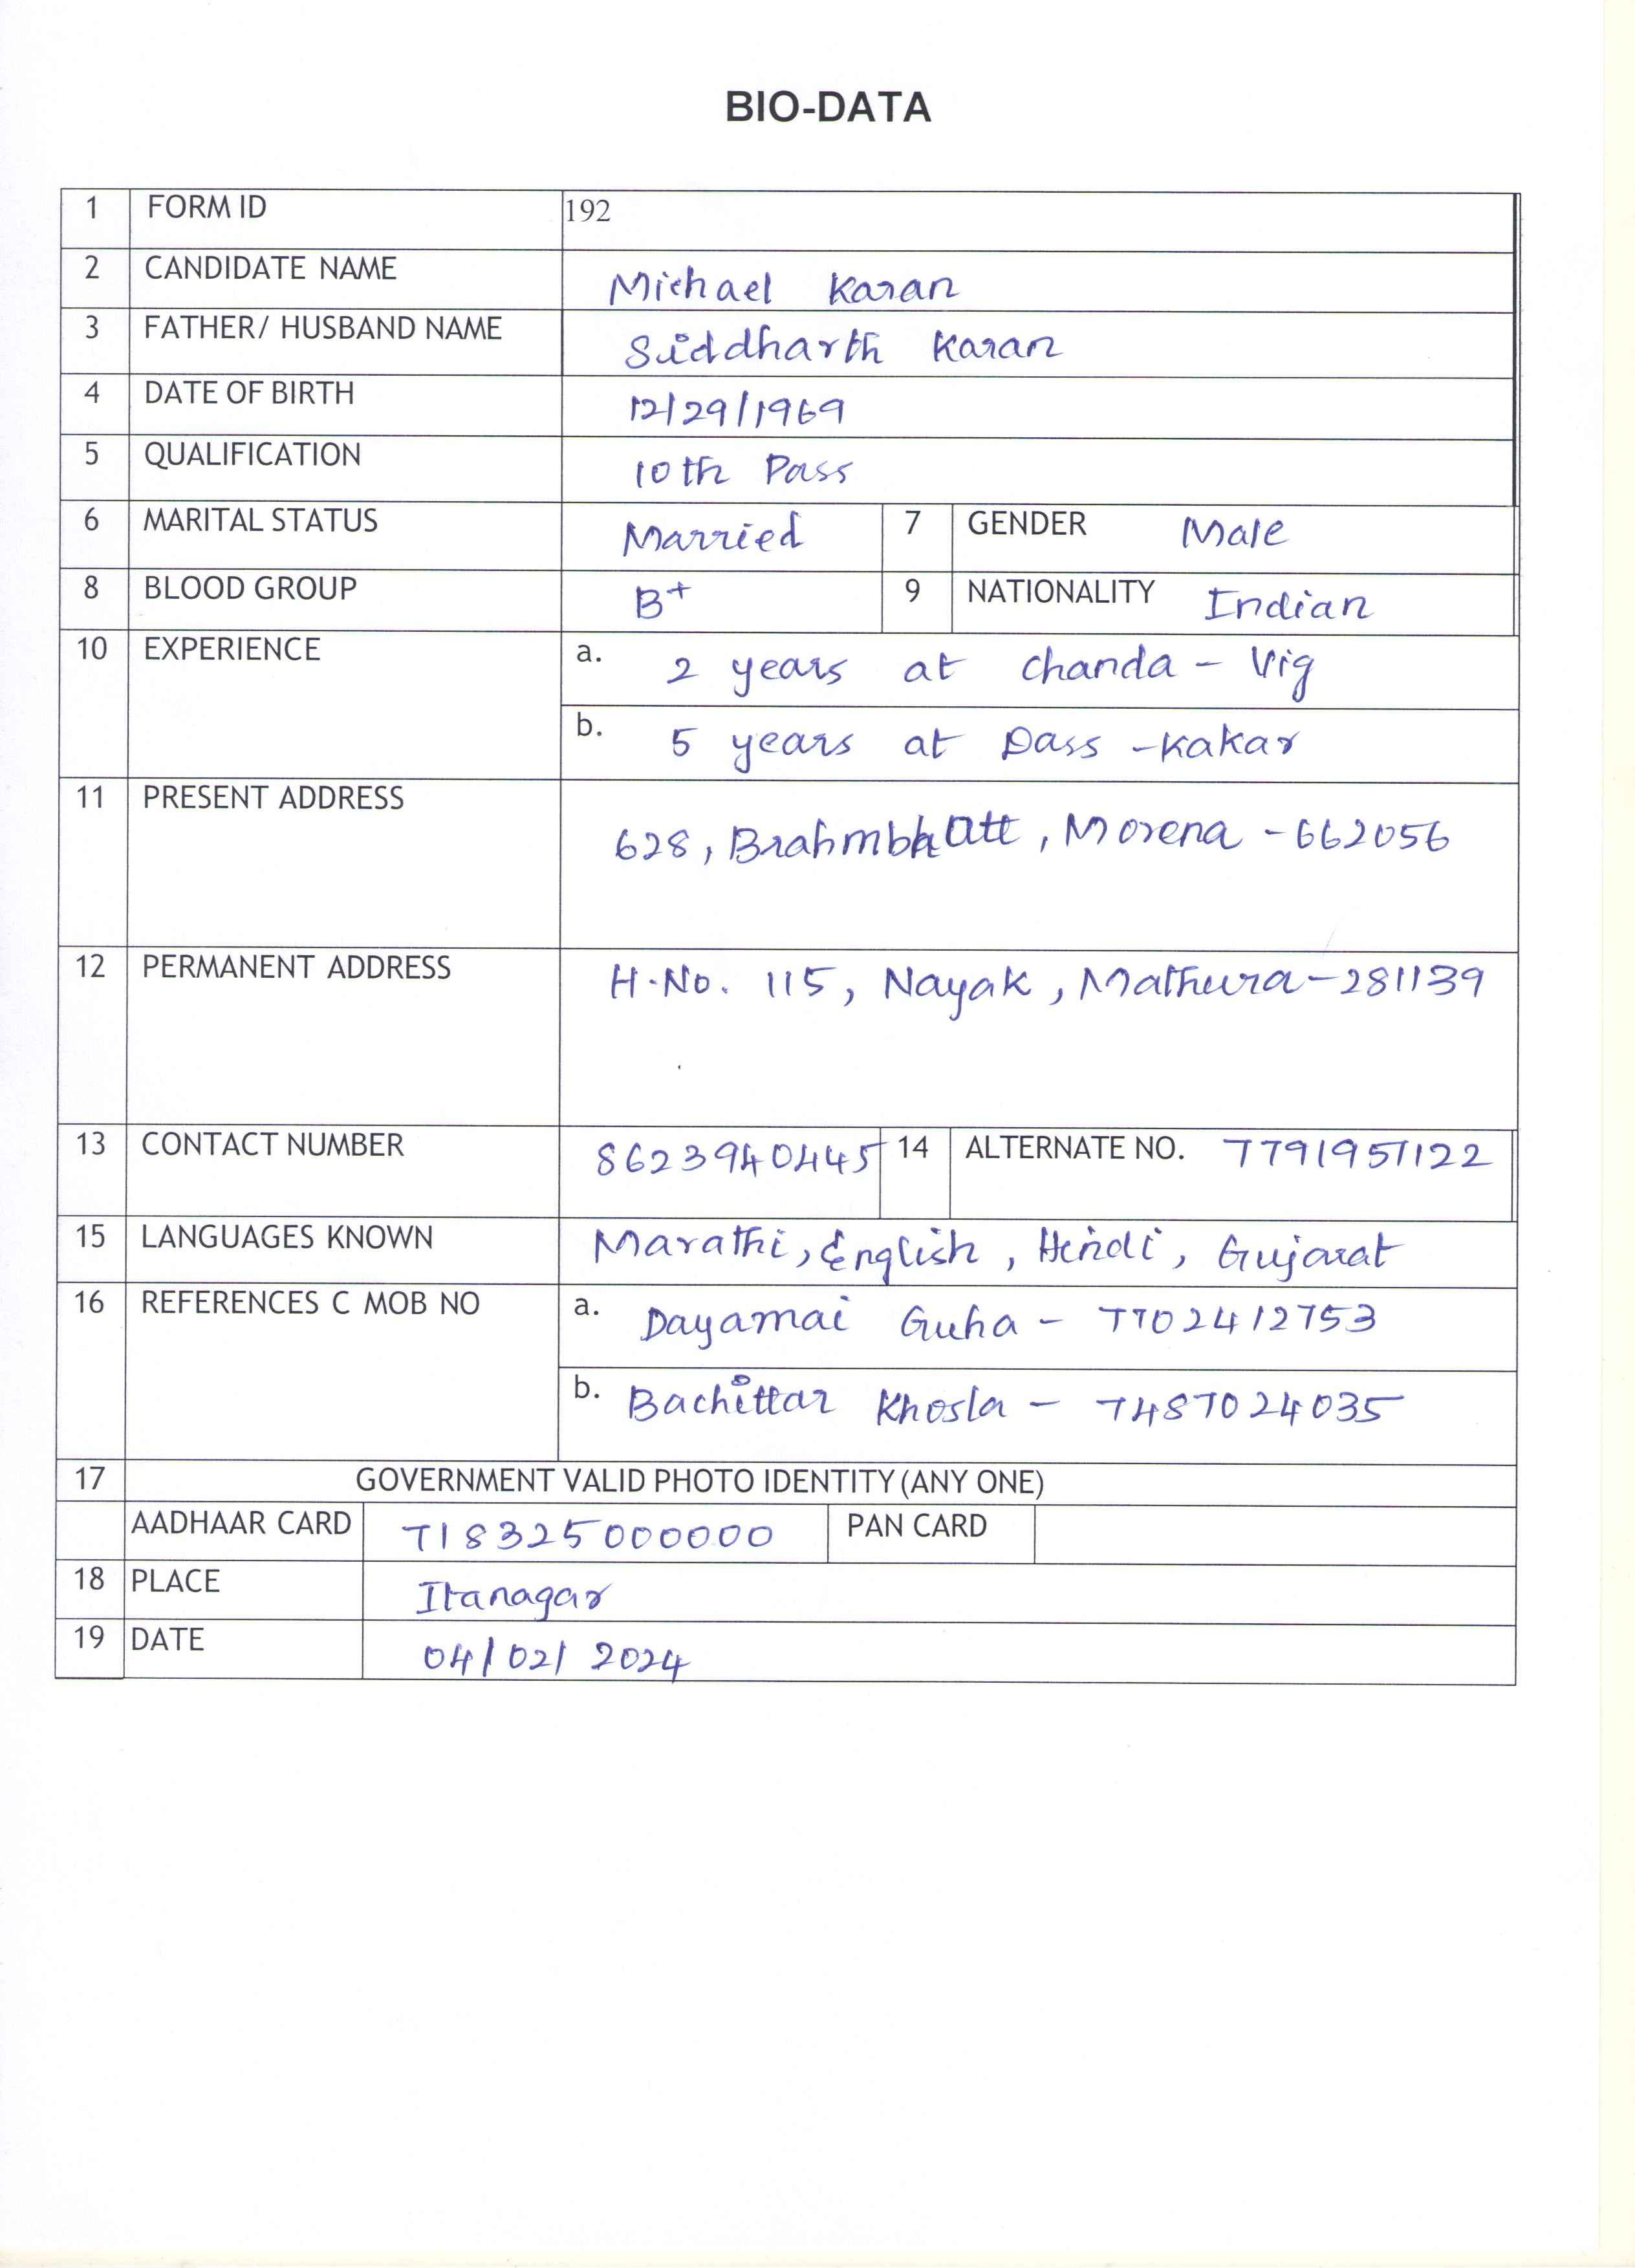 BIO-DATA
1 FORM ID 192
2 CANDIDATE NAME Michael Karan
3 FATHER/ HUSBAND NAME Siddharth Karan
4 DATE OF BIRTH 12/29/1969
5 QUALIFICATION 10th Pass
6 MARITAL STATUS Married 7 GENDER Male
8 BLOOD GROUP B+ 9 NATIONALITY Indian
10 EXPERIENCE a. 2 years at Chanda - Vig
b. 5 years at Dass - Kakar
11 PRESENT ADDRESS 628, Brahmbhatt, Morena - 662056
12 PERMANENT ADDRESS H.No. 115, Nayak, Mathura - 281139
13 CONTACT NUMBER 8623940445 14 ALTERNATE NO. 7791957122
15 LANGUAGES KNOWN Marathi, English, Hindi, Gujarat
16 REFERENCES C MOB NO a. Dayamai Guha - 7702412753
b. Bachittar Khosla - 7487024035
17 GOVERNMENT VALID PHOTO IDENTITY (ANY ONE)
AADHAAR CARD 718325000000 PAN CARD
18 PLACE Itanagar
19 DATE 04/02/2024